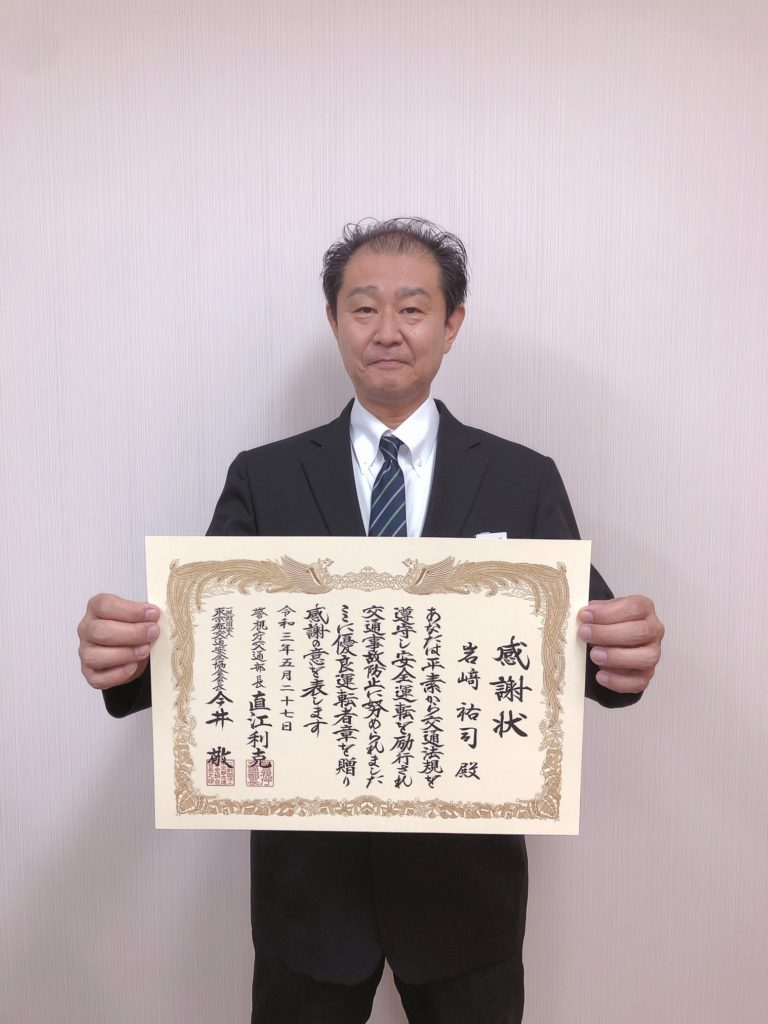 感謝状
岩﨑祐司殿
あなたは平素から交通法規を
遵守し安全運転を励行され
交通事故防止に努められました
ここに優良運転者章を贈り
感謝の意を表します
令和三年五月二十七日
警視庁交通部長 直江利克
一般財団法人
東京都交通安全協会会長 今井敬